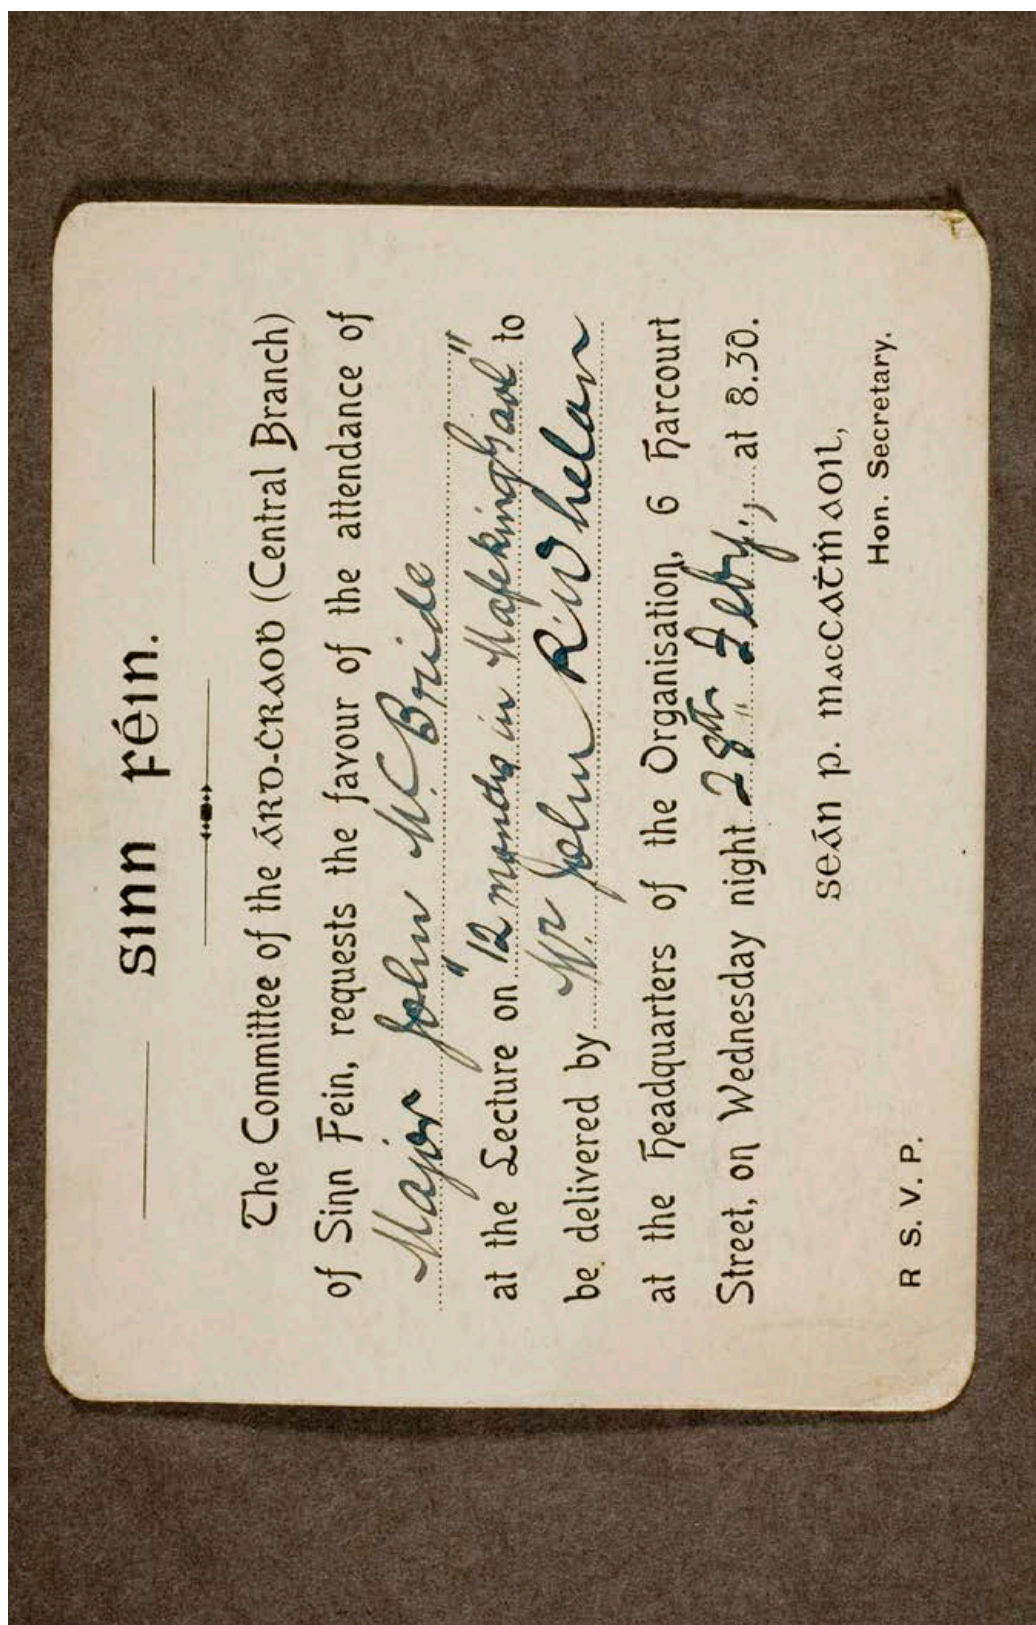 Sinn Féin.
The Committee of the Árd-Ċraoḃ (Central Branch)
of Sinn Fein, requests the favour of the attendance of
Major John McBride
at the Lecture on "12 Months in Mafeking Gaol" to
be delivered by Mr John R. Whelan
at the Headquarters of the Organisation, 6 Harcourt
Street, on Wednesday night 28th Feby., at 8.30.
Seán P. MacCaṫṁaoil,
Hon. Secretary.
R S. V. P.